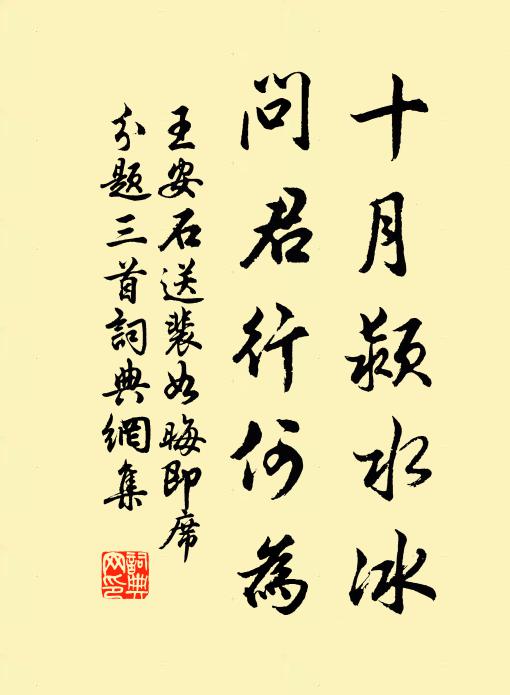 十月潁水冰
問君行何為
王安石送裴如晦即席
分題三首詞典網集
詞典網印